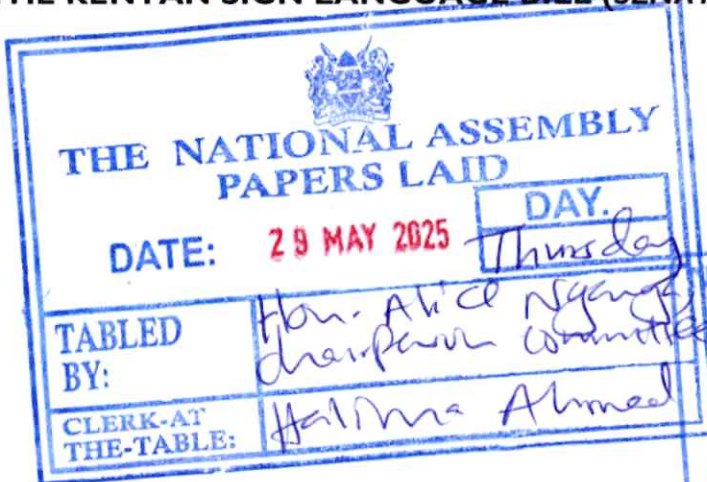 THE KENYAN SIGN LANGUAGE BILL (SENAT
THE NATIONAL ASSEMBLY
PAPERS LAID
DATE: 29 MAY 2025
DAY.
Thursday
TABLED BY:
Hon. Alice Ng'ang'a,
chairperson committee
CLERK-AT THE-TABLE:
Halima Ahmed